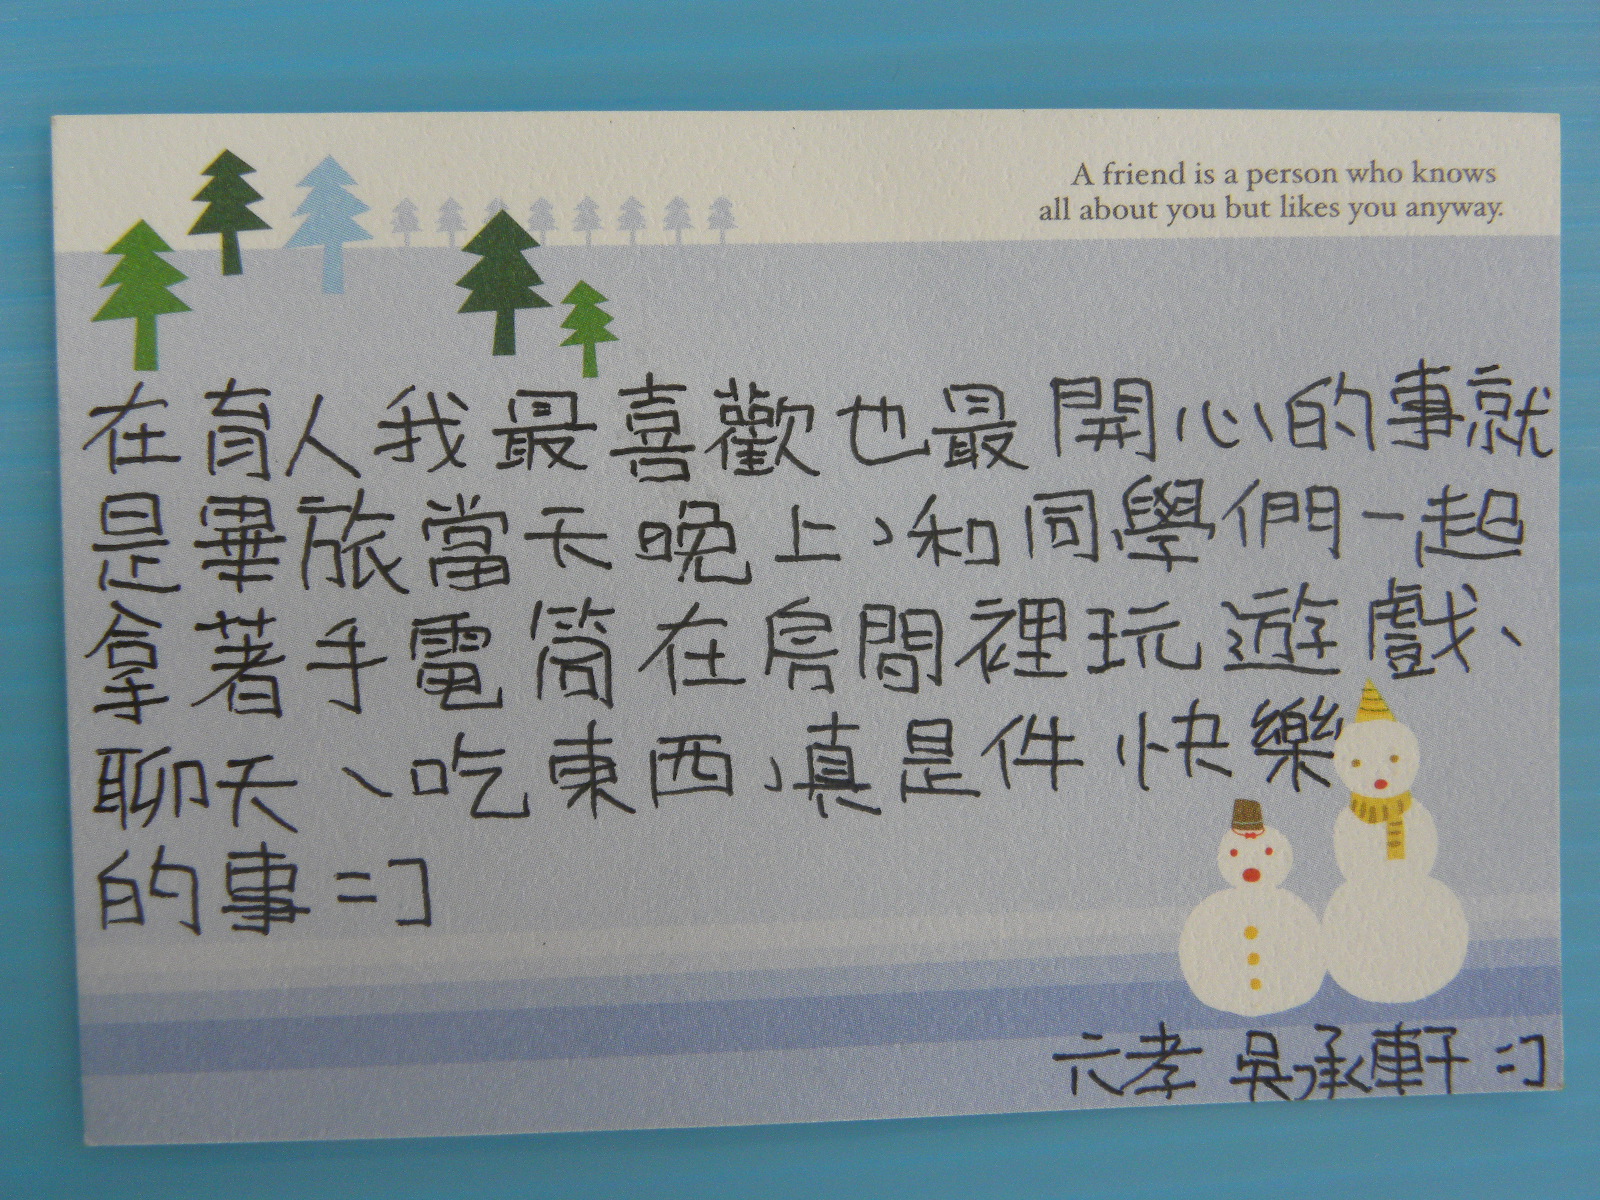 A friend is a person who knows
all about you but likes you anyway.
在育人我最喜歡也最開心的事就
是畢旅當天晚上,和同學們一起
拿著手電筒在房間裡玩遊戲、
聊天、吃東西,真是件快樂
的事=]
六孝 吳承軒=]